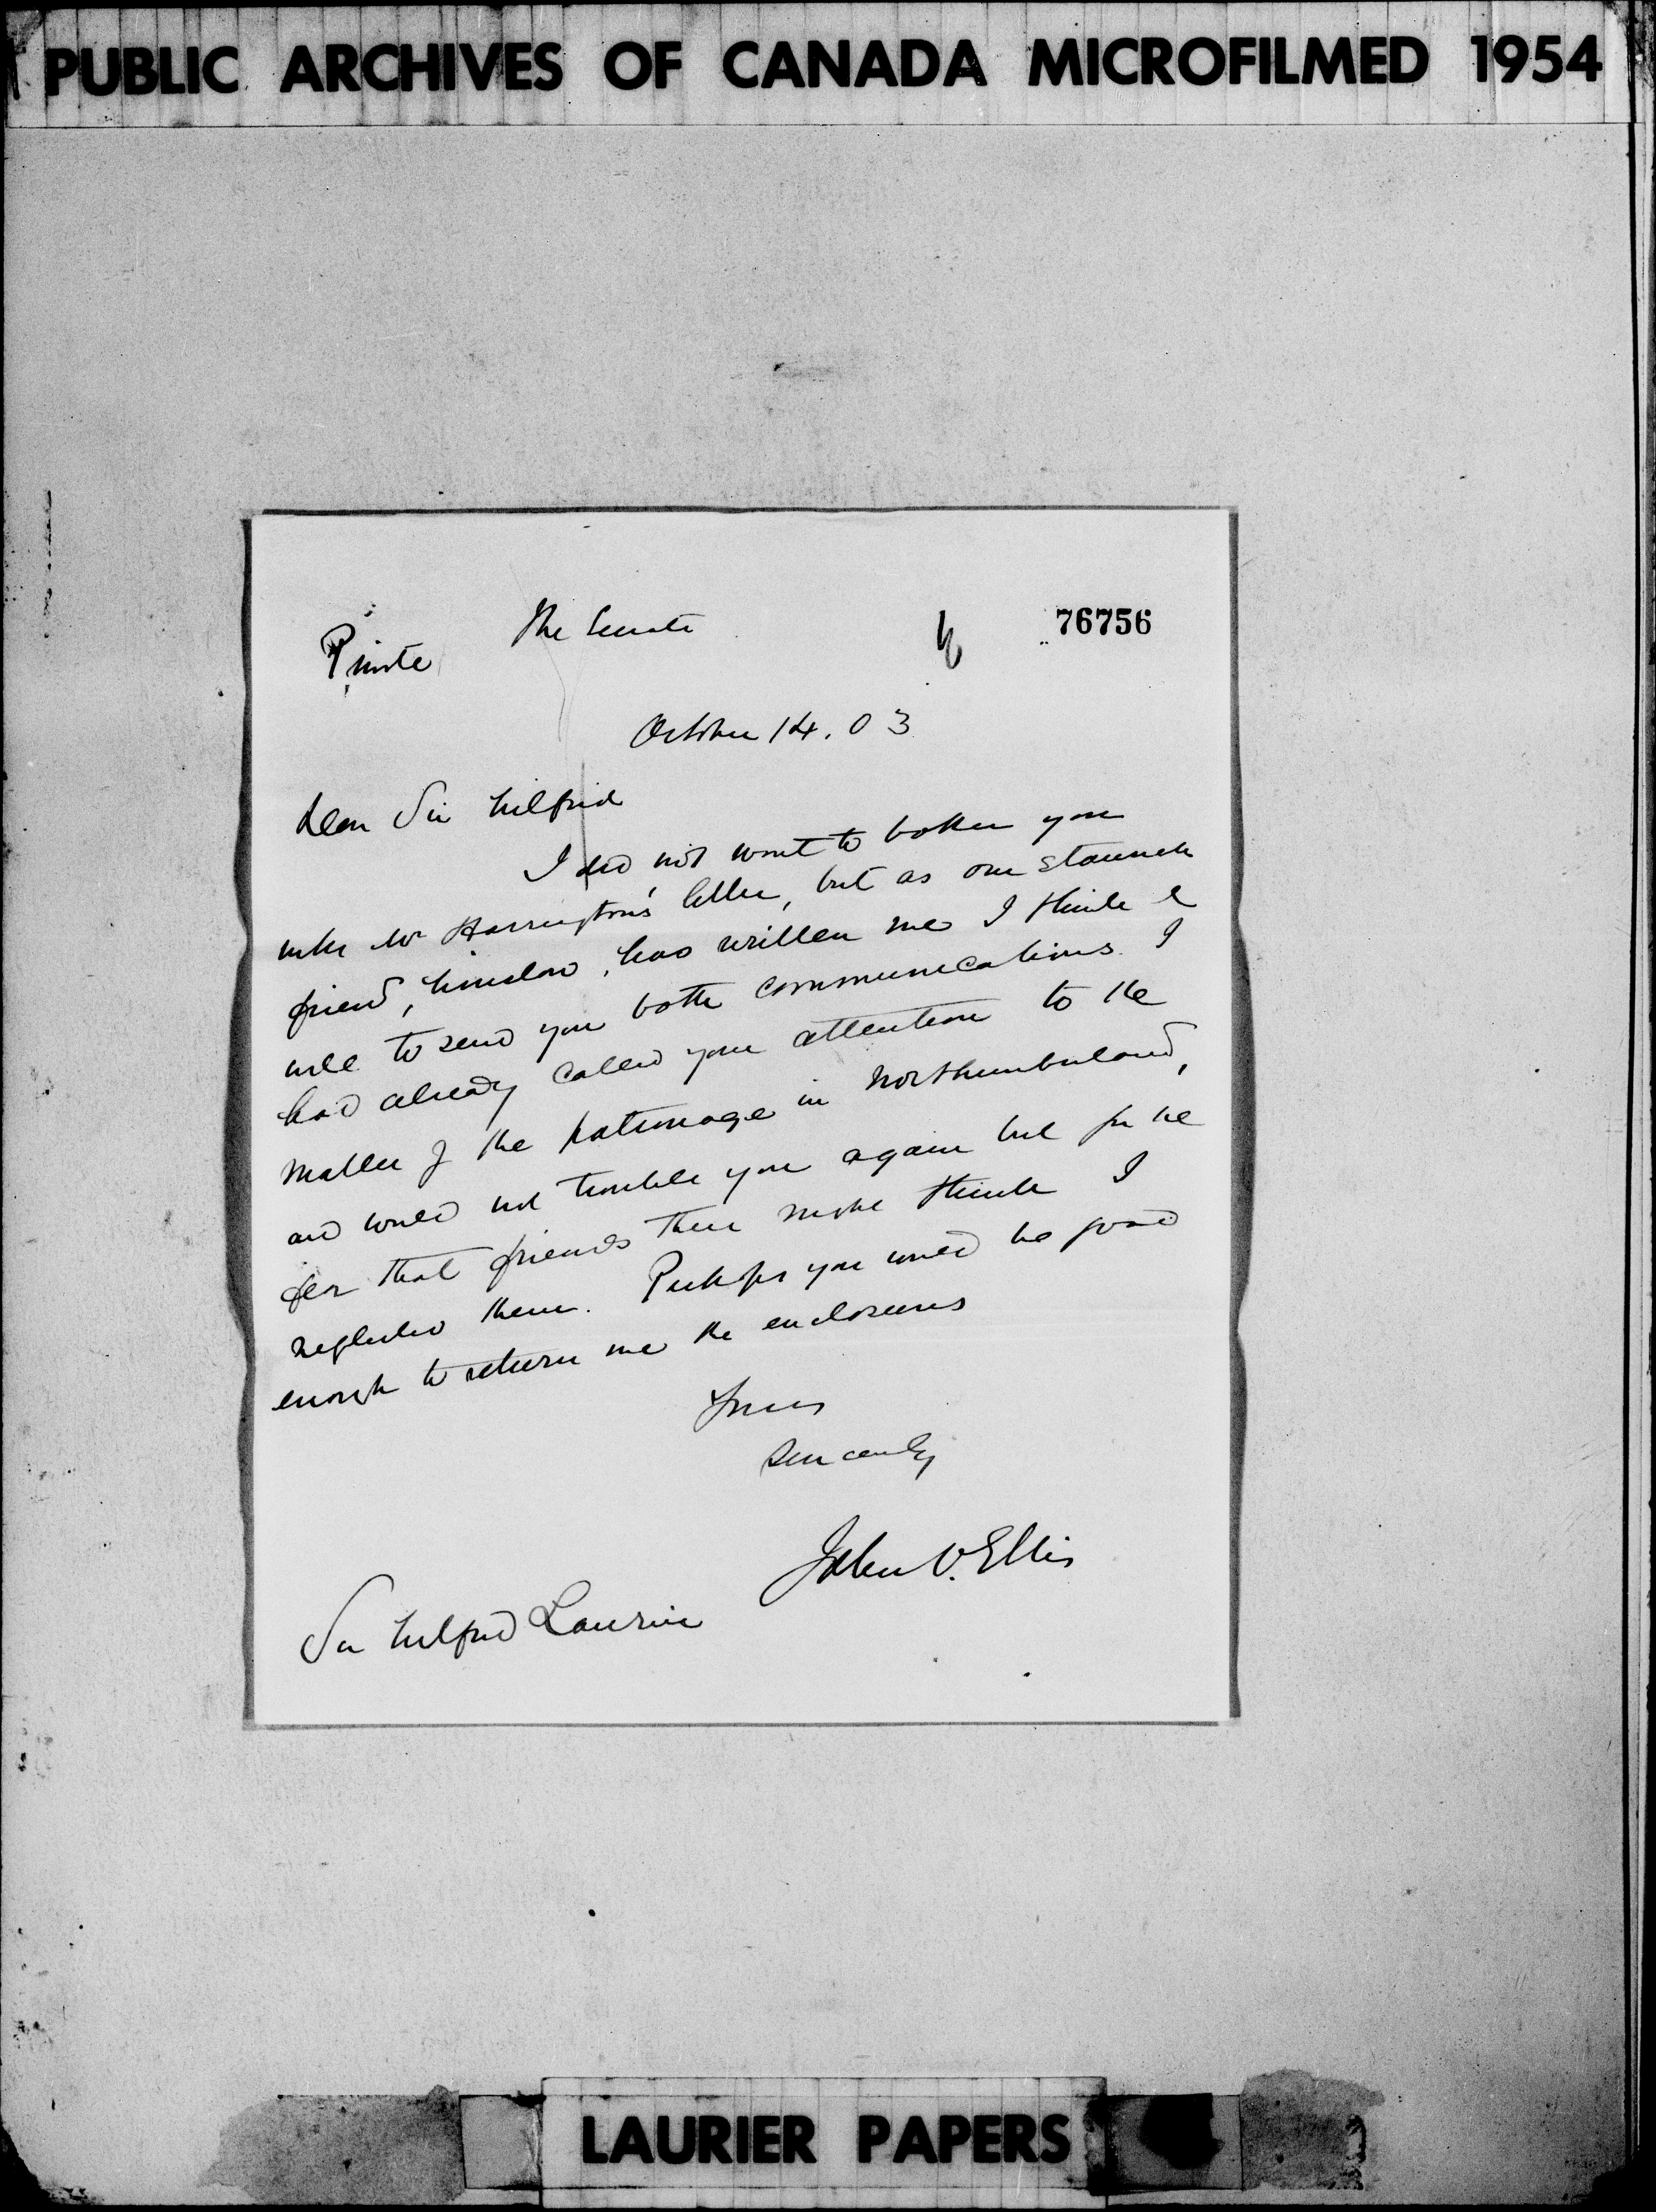 PUBLIC ARCHIVES OF CANADA MICROFILMED 1954
76756
The Senate
Private
October 14. 03
Dear Sir Wilfrid
I did not want to bother you
with Mr Harrington's letter, but as our staunch
friend, Winslow, has written me I think it
well to send you both communications. I
had already called your attention to the
matter of the patronage in Northumberland,
and would not trouble you again but for the
fear that friends there might think I
neglected them. Perhaps you would be good
enough to return me the enclosures
Yours
Sincerely
John V. Ellis
Sir Wilfrid Laurier
LAURIER PAPERS